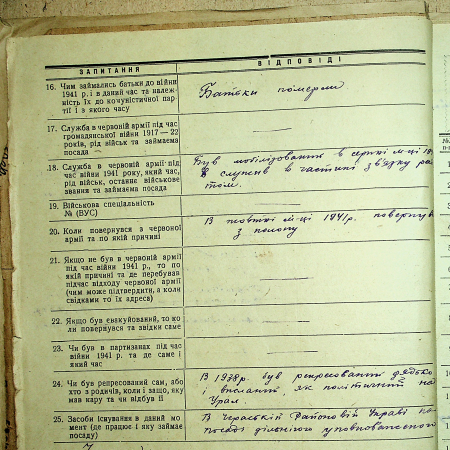 ЗАПИТАННЯ
ВІДПОВІДІ
16. Чим займались батьки до війни
1941 р. і в даний час та належ-
ність їх до комуністичної пар-
тії і з якого часу
Батьки померли
17. Служба в червоній армії під час
громадянської війни 1917—22
років, рід військ та займаєма
посада
18. Служба в червоній армії під
час війни 1941 року, який час,
рід військ, останнє військове
звання та займаєма посада
Був мобілізований в серпні м-ці 19
служив в частині зв'язку
19. Військова спеціяльність
№ (ВУС)
20. Коли повернувся з червоної
армії та по якій причині
В жовтні м-ці 1941 р. повернув
з полону
21. Якщо не був в червоній армії
під час війни 1941 р., то по
якій причині та де перебував
підчас відходу червоної армії
(чим може підтвердити, а коли
свідками то їх адреса)
22. Якщо був евакуйований, то ко
ли повернувся та звідки саме
23. Чи був в партизанах під час
війни 1941 р. та де саме і
який час
24. Чи був репресований сам, або
хто з родичів, коли і защо, яку
мав кару та чи відбув її
В 1938 р. був репресований дядько
і висланий, як політичний на
Урал.
25. Засоби існування в даний мо
мент (де працює і яку займає
посаду)
В Районовій Управі на
посаді дільнічого уповноваженого